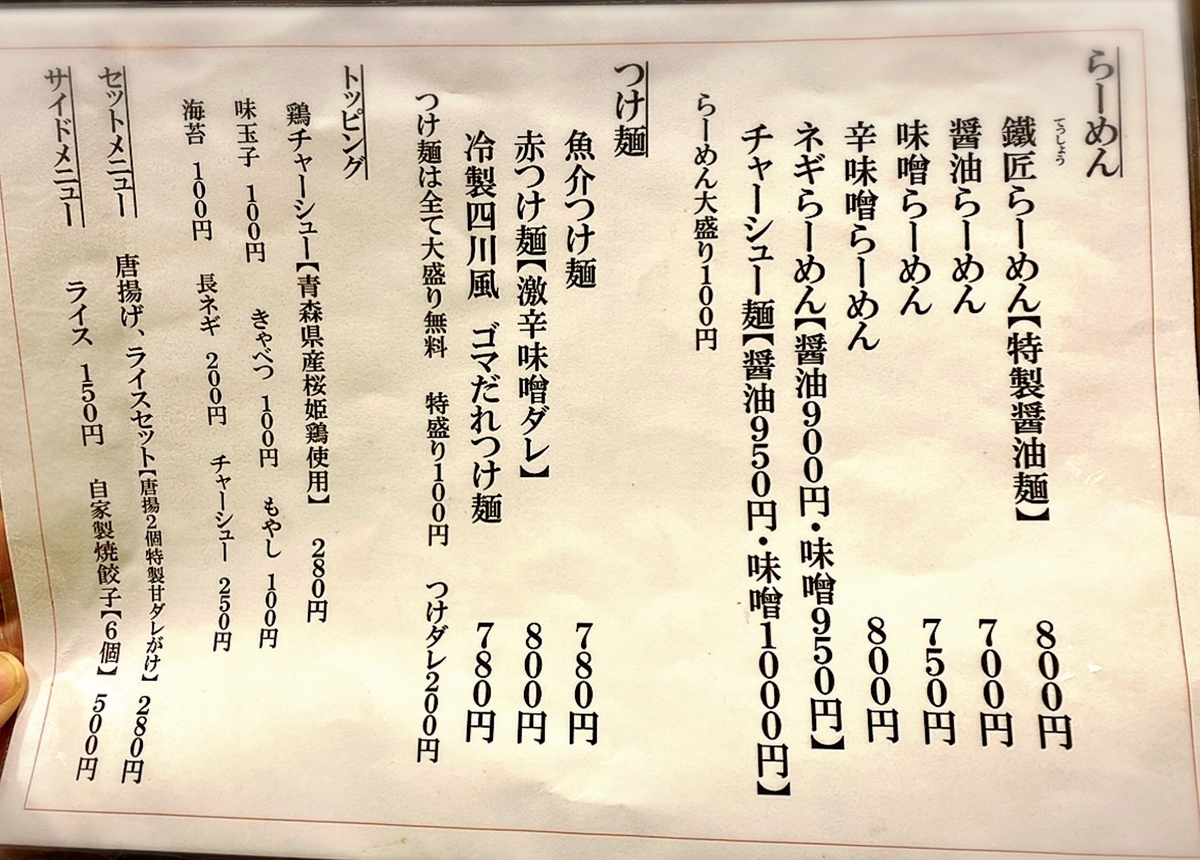 らーめん
てっしょう
鐵匠らーめん【特製醤油麺】 800円
醤油らーめん 700円
味噌らーめん 750円
辛味噌らーめん 800円
ネギらーめん【醤油900円・味噌950円】
チャーシュー麺【醤油950円・味噌1000円】
らーめん大盛り100円
つけ麺
魚介つけ麺 780円
赤つけ麺【激辛味噌ダレ】 800円
冷製四川風 ゴマだれつけ麺 780円
つけ麺は全て大盛り無料 特盛り100円 つけダレ200円
トッピング
鶏チャーシュー【青森県産桜姫鶏使用】 280円
味玉子 100円 きゃべつ 100円 もやし 100円
海苔 100円 長ネギ 200円 チャーシュー 250円
セットメニュー 唐揚げ、ライスセット【唐揚2個特製甘ダレがけ】 280円
サイドメニュー ライス 150円 自家製焼餃子【6個】 500円